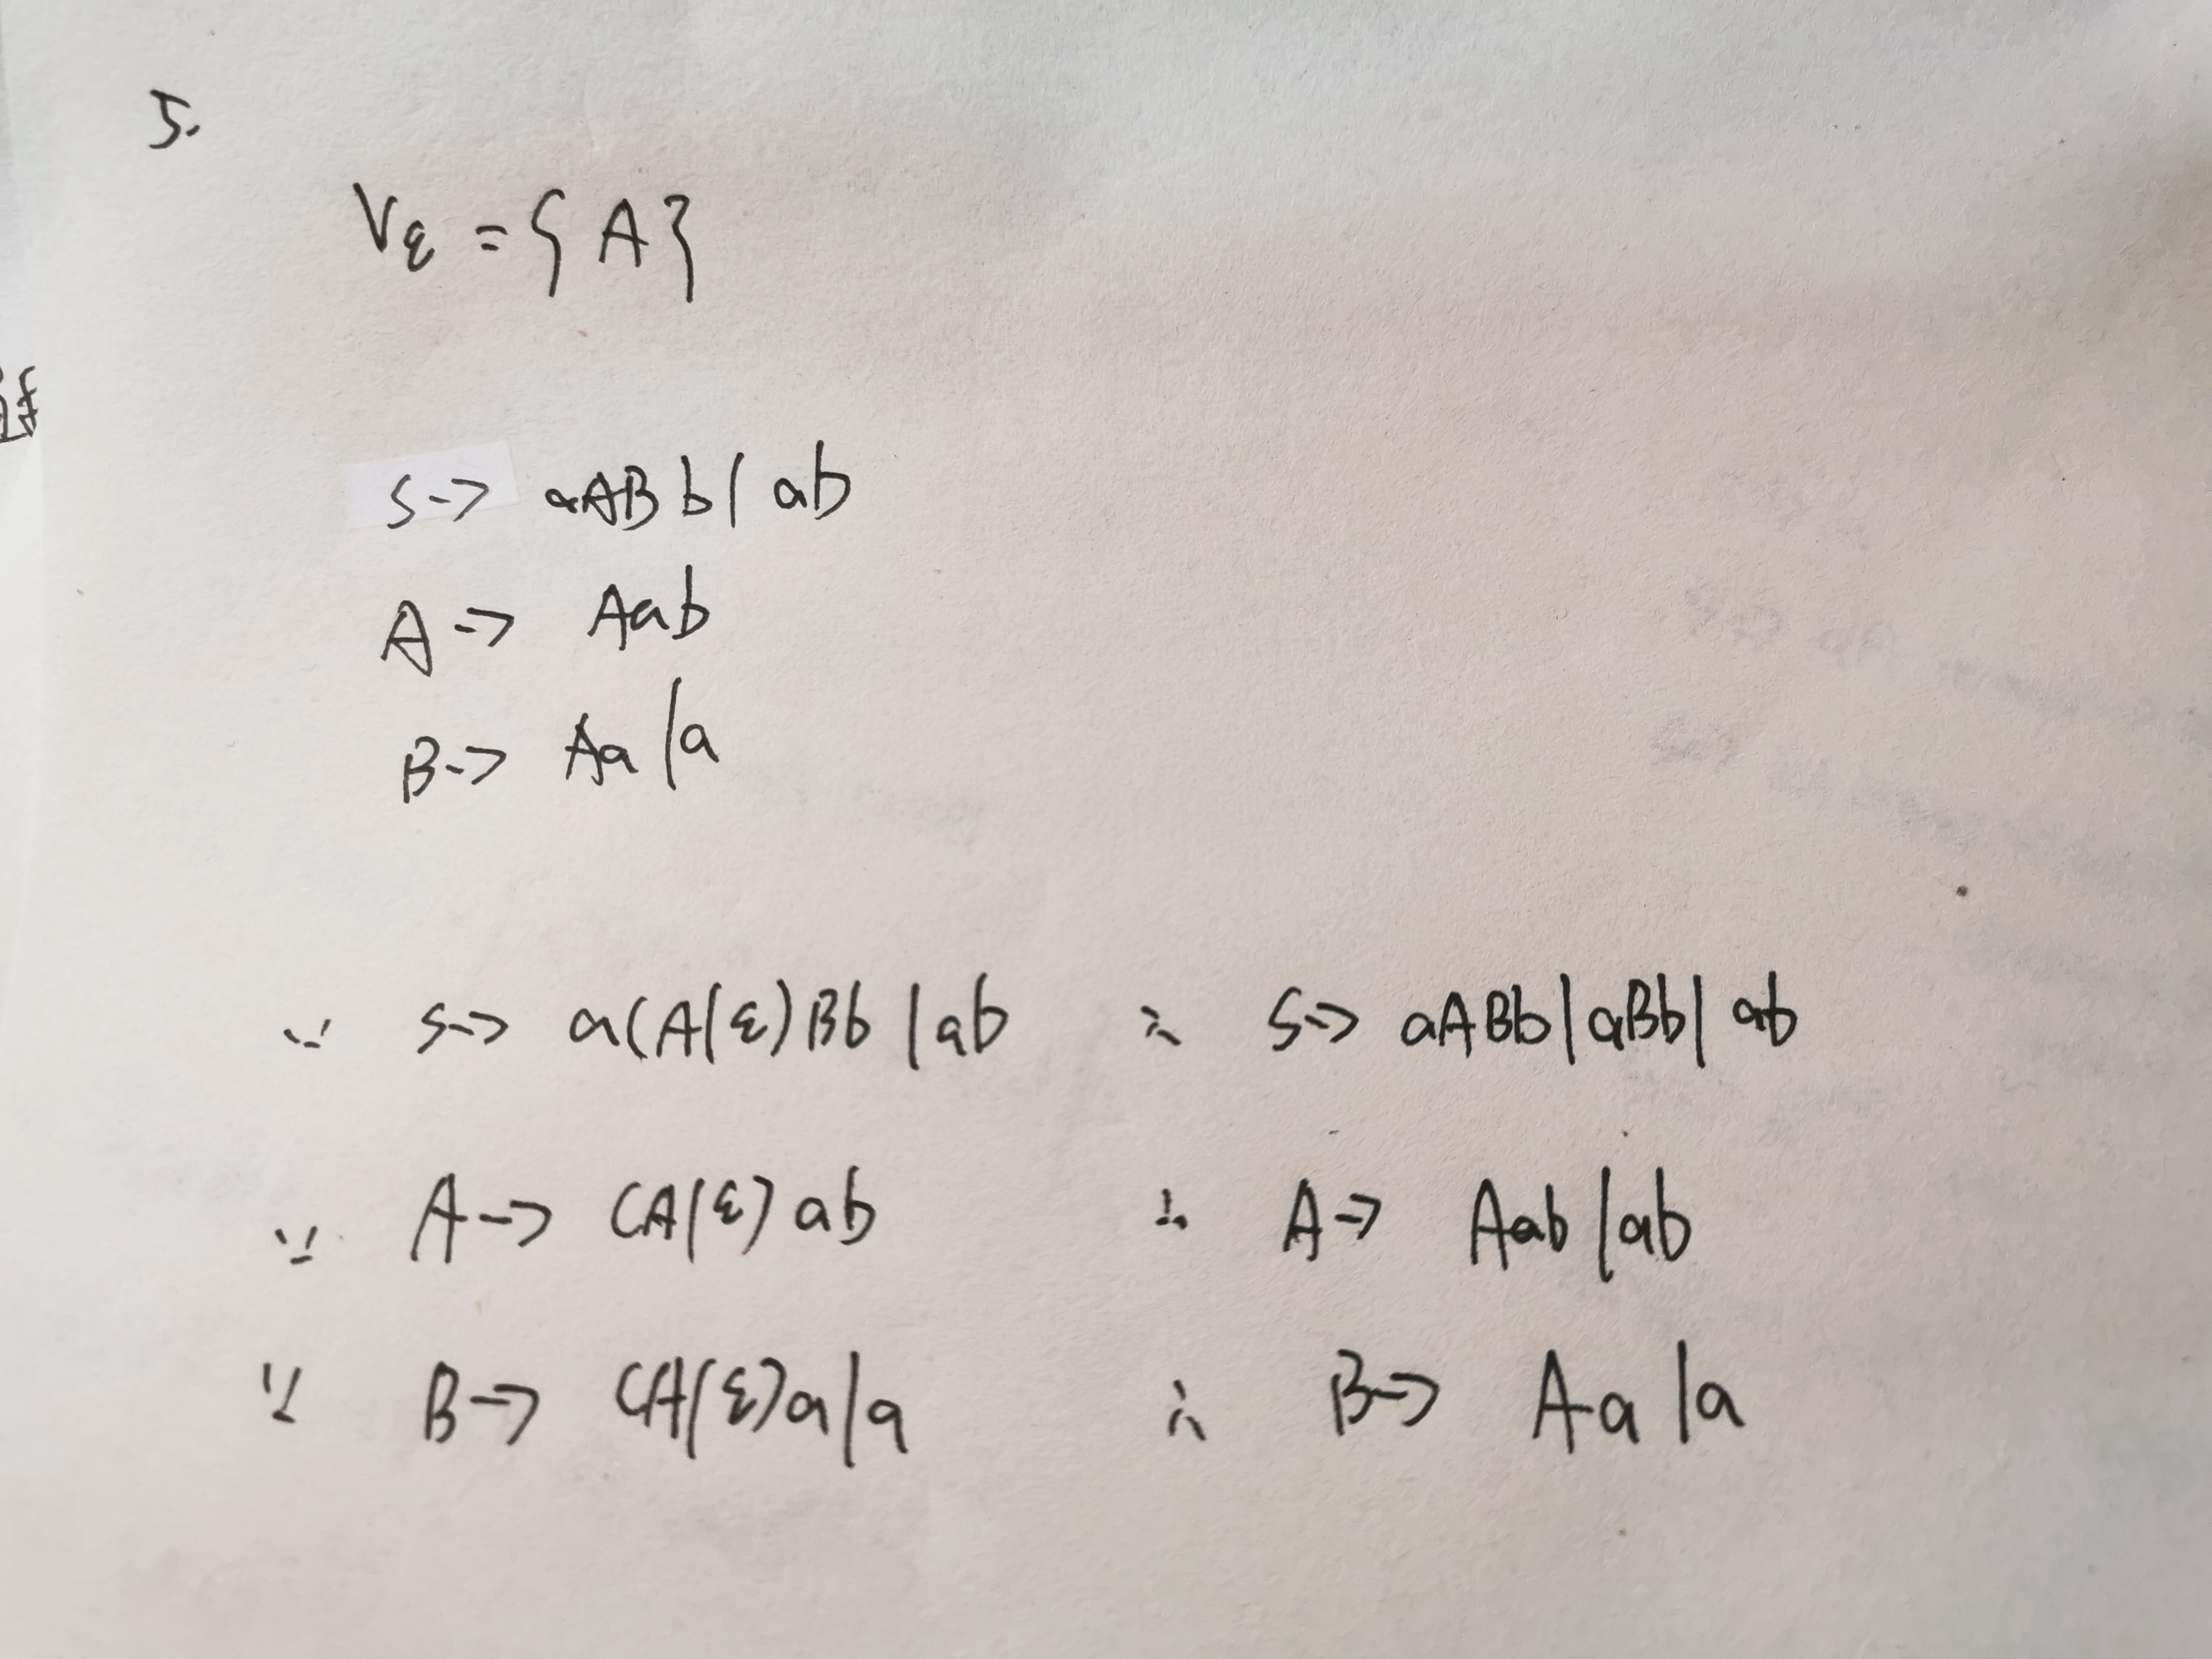 5.
Vε = { A }
S -> aABb | ab
A -> Aab
B -> Aa | a
∵ S -> a(A|ε)Bb | ab ∴ S -> aABb | aBb | ab
∵ A -> (A|ε)ab ∴ A -> Aab | ab
∵ B -> (A|ε)a | a ∴ B -> Aa | a